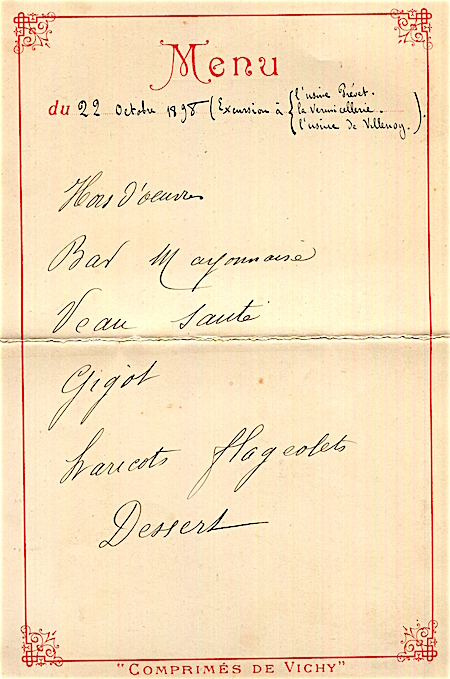 Menu
du 22 Octobre 1898 (Excursion à { l'usine Prévet.
la Vermicellerie.
l'usine de Villenoy. } ).
Hors d'oeuvres
Bar Mayonnaise
Veau Sauté
Gigot
haricots flageolets
Dessert
"COMPRIMÉS DE VICHY"